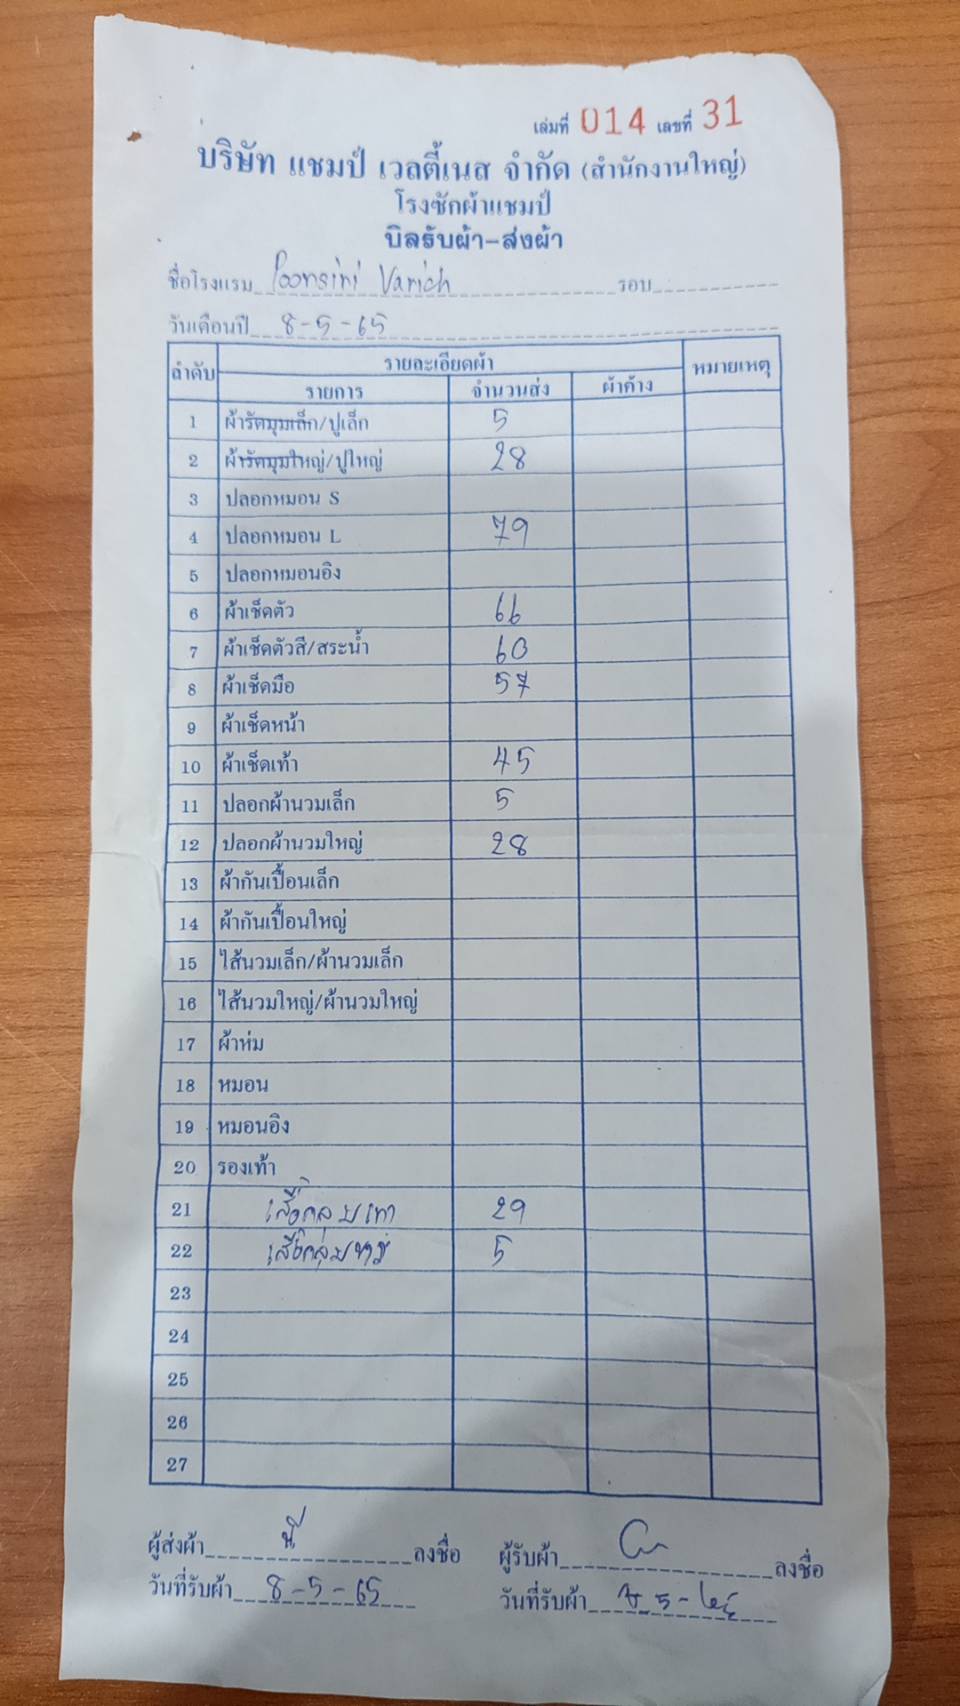 เล่มที่ 014 เลขที่ 31
บริษัท แชมป์ เวลตี้เนส จำกัด (สำนักงานใหญ่)
โรงซักผ้าแชมป์
บิลรับผ้า-ส่งผ้า
ชื่อโรงแรม Poonsiri Varich รอบ
วันเดือนปี 8-5-65
ลำดับ รายละเอียดผ้า หมายเหตุ
รายการ จำนวนส่ง ผ้าค้าง
1 ผ้ารัดมุมเล็ก/ปูเล็ก 5
2 ผ้ารัดมุมใหญ่/ปูใหญ่ 28
3 ปลอกหมอน S
4 ปลอกหมอน L 79
5 ปลอกหมอนอิง
6 ผ้าเช็ดตัว 66
7 ผ้าเช็ดตัวสี/สระน้ำ 60
8 ผ้าเช็ดมือ 57
9 ผ้าเช็ดหน้า
10 ผ้าเช็ดเท้า 45
11 ปลอกผ้านวมเล็ก 5
12 ปลอกผ้านวมใหญ่ 28
13 ผ้ากันเปื้อนเล็ก
14 ผ้ากันเปื้อนใหญ่
15 ไส้นวมเล็ก/ผ้านวมเล็ก
16 ไส้นวมใหญ่/ผ้านวมใหญ่
17 ผ้าห่ม
18 หมอน
19 หมอนอิง
20 รองเท้า
21 เสื้อคลุมเทา 29
22 เสื้อคลุม 5
23
24
25
26
27
ผู้ส่งผ้า ลงชื่อ ผู้รับผ้า ลงชื่อ
วันที่รับผ้า 8-5-65 วันที่รับผ้า